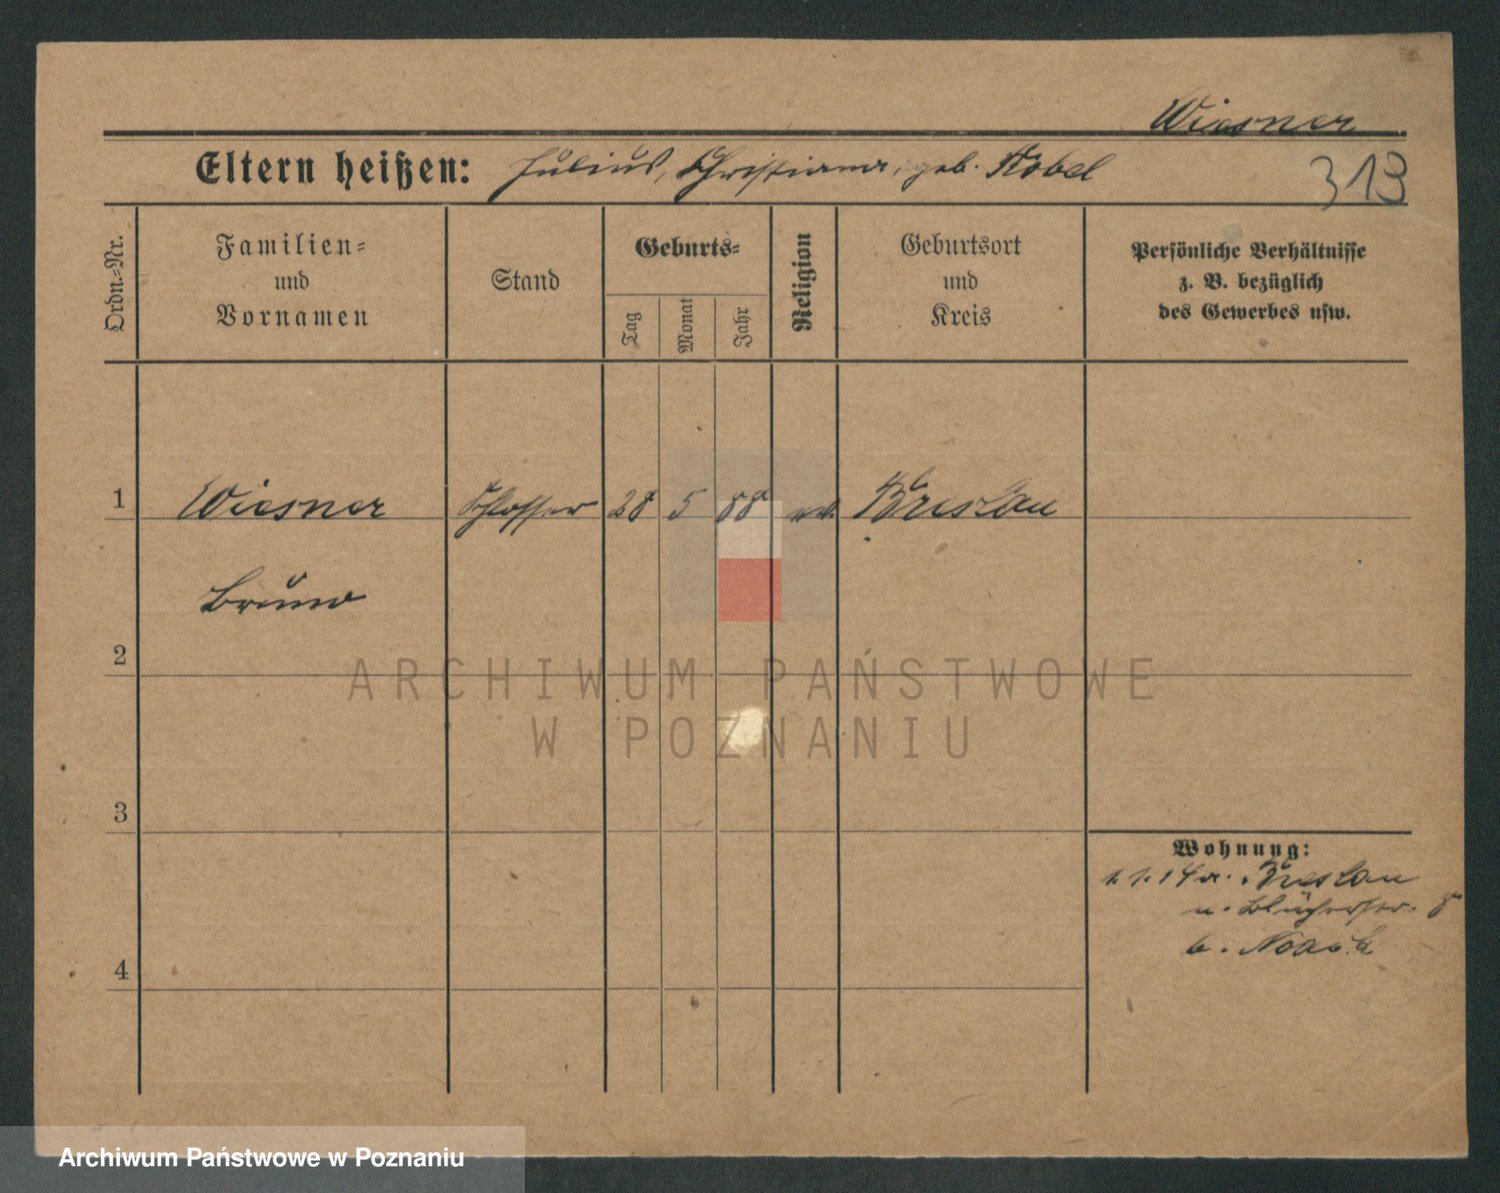 Wiesner
Eltern heißen: Julius, Christiana, geb. Nobel
313
Ordn.=Nr.
Familien=
und
Vornamen
Stand
Geburts=
Tag
Monat
Jahr
Religion
Geburtsort
und
Kreis
Persönliche Verhältnisse
z. B. bezüglich
des Gewerbes usw.
1 Wiesner Schlosser 28 5 88 Breslau
Bruno
2
ARCHIWUM PAŃSTWOWE
W POZNANIU
3
Wohnung:
1.1.14 Breslau
n. Blücherstr. 8
b. Noack
4
Archiwum Państwowe w Poznaniu